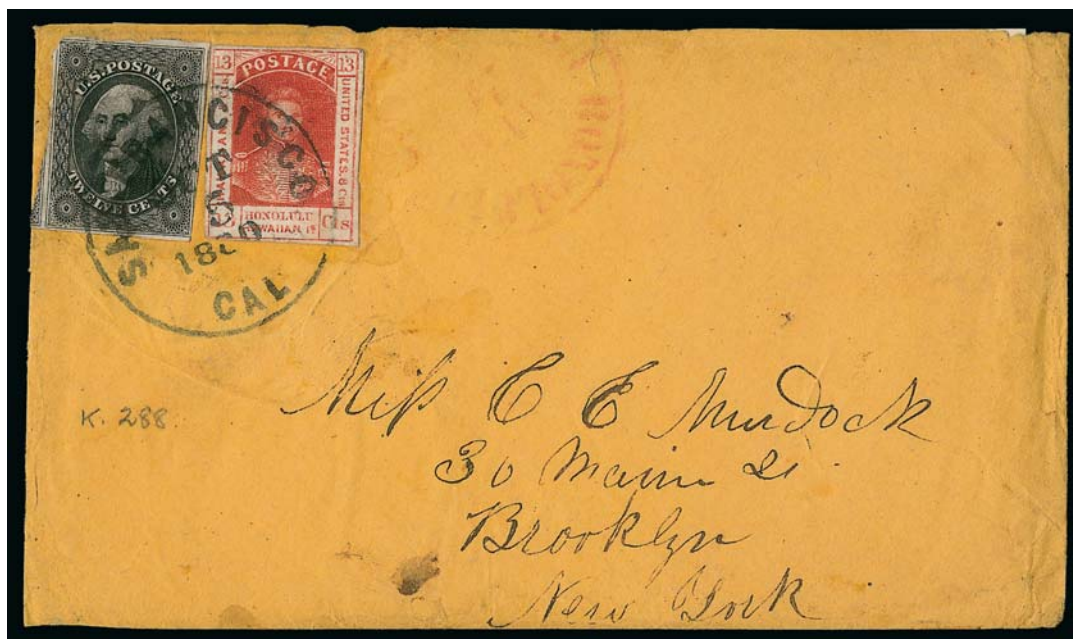 U.S. POSTAGE
TWELVE CENTS
13 POSTAGE 13
UNITED STATES. 8 Cts
HONOLULU Cts
HAWAIIAN Is
SAN FRANCISCO
1860
CAL
K. 288.
Miss C E Murdock
30 Main St
Brooklyn
New York